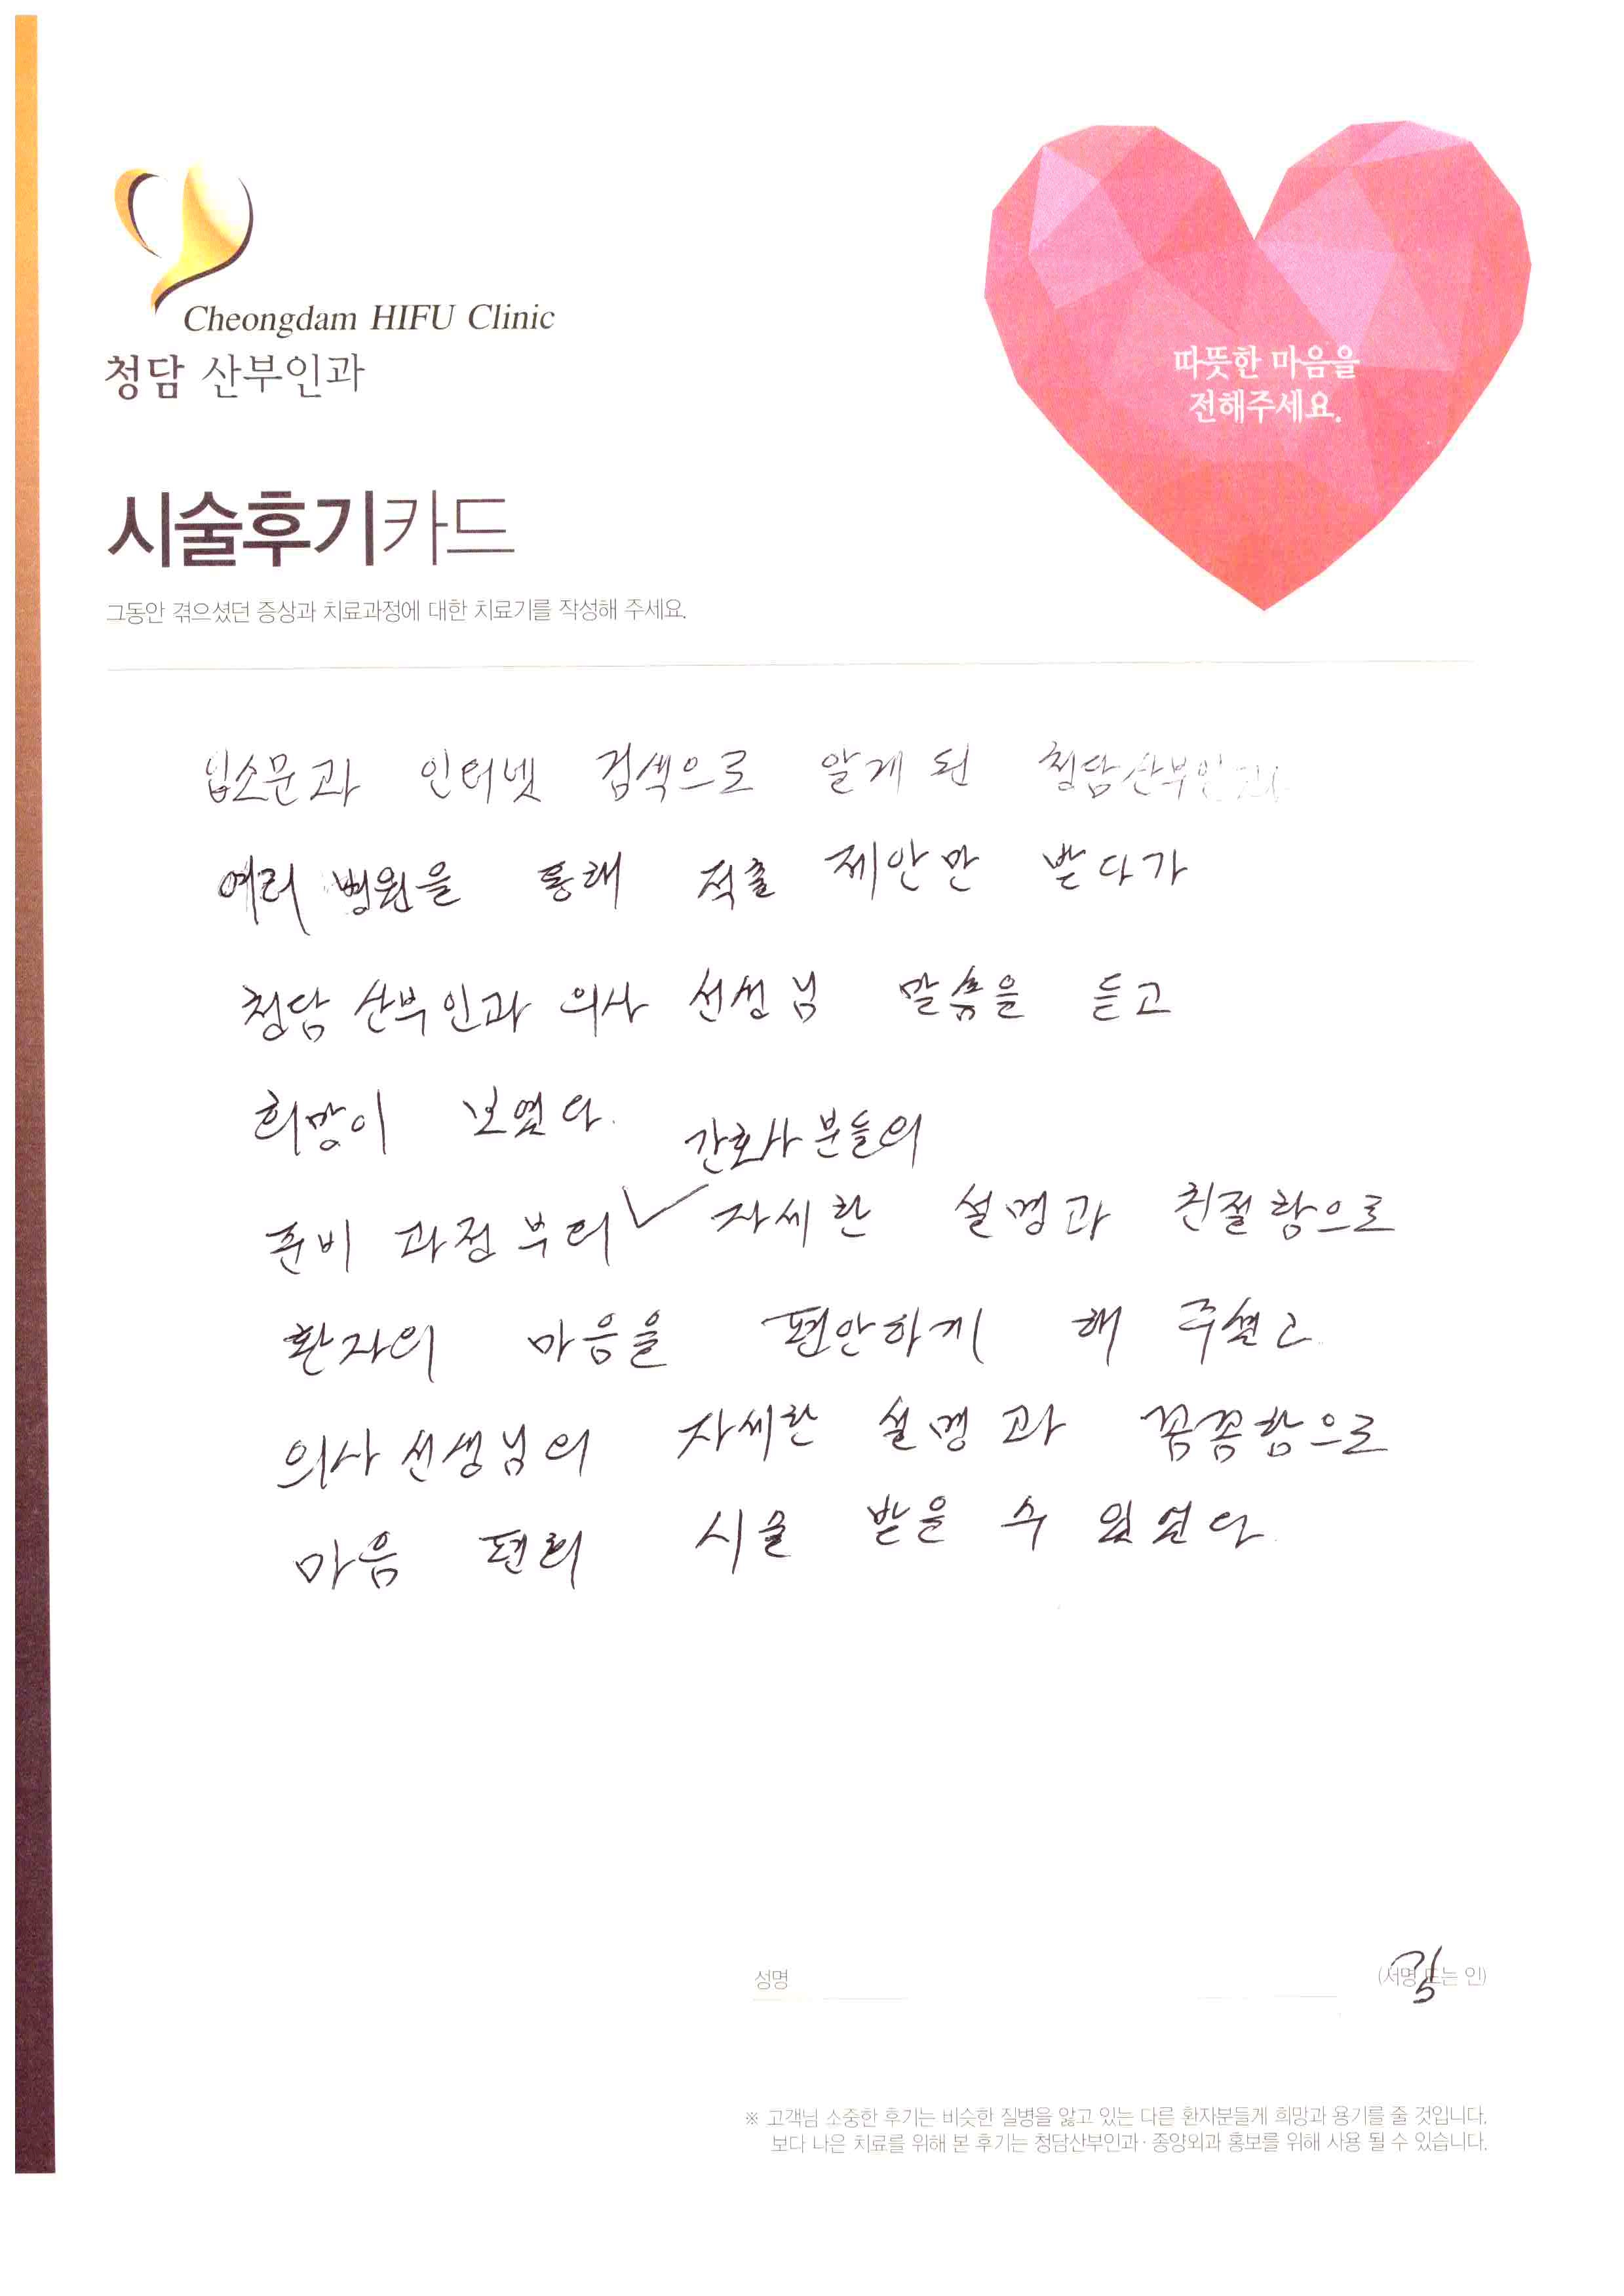 Cheongdam HIFU Clinic
청담 산부인과
따뜻한 마음을
전해주세요.
시술후기카드
그동안 겪으셨던 증상과 치료과정에 대한 치료기를 작성해 주세요.
입소문과 인터넷 검색으로 알게 된 청담산부인과
여러 병원을 통해 적출 제안만 받다가
청담 산부인과 의사 선생님 말씀을 듣고
희망이 보였다.
간호사 분들의
준비 과정부터 자세한 설명과 친절함으로
환자의 마음을 편안하게 해 주셨고
의사 선생님의 자세한 설명과 꼼꼼함으로
마음 편히 시술 받을 수 있었다.
성명 (서명 또는 인)
※ 고객님 소중한 후기는 비슷한 질병을 앓고 있는 다른 환자분들게 희망과 용기를 줄 것입니다.
보다 나은 치료를 위해 본 후기는 청담산부인과·종양외과 홍보를 위해 사용 될 수 있습니다.